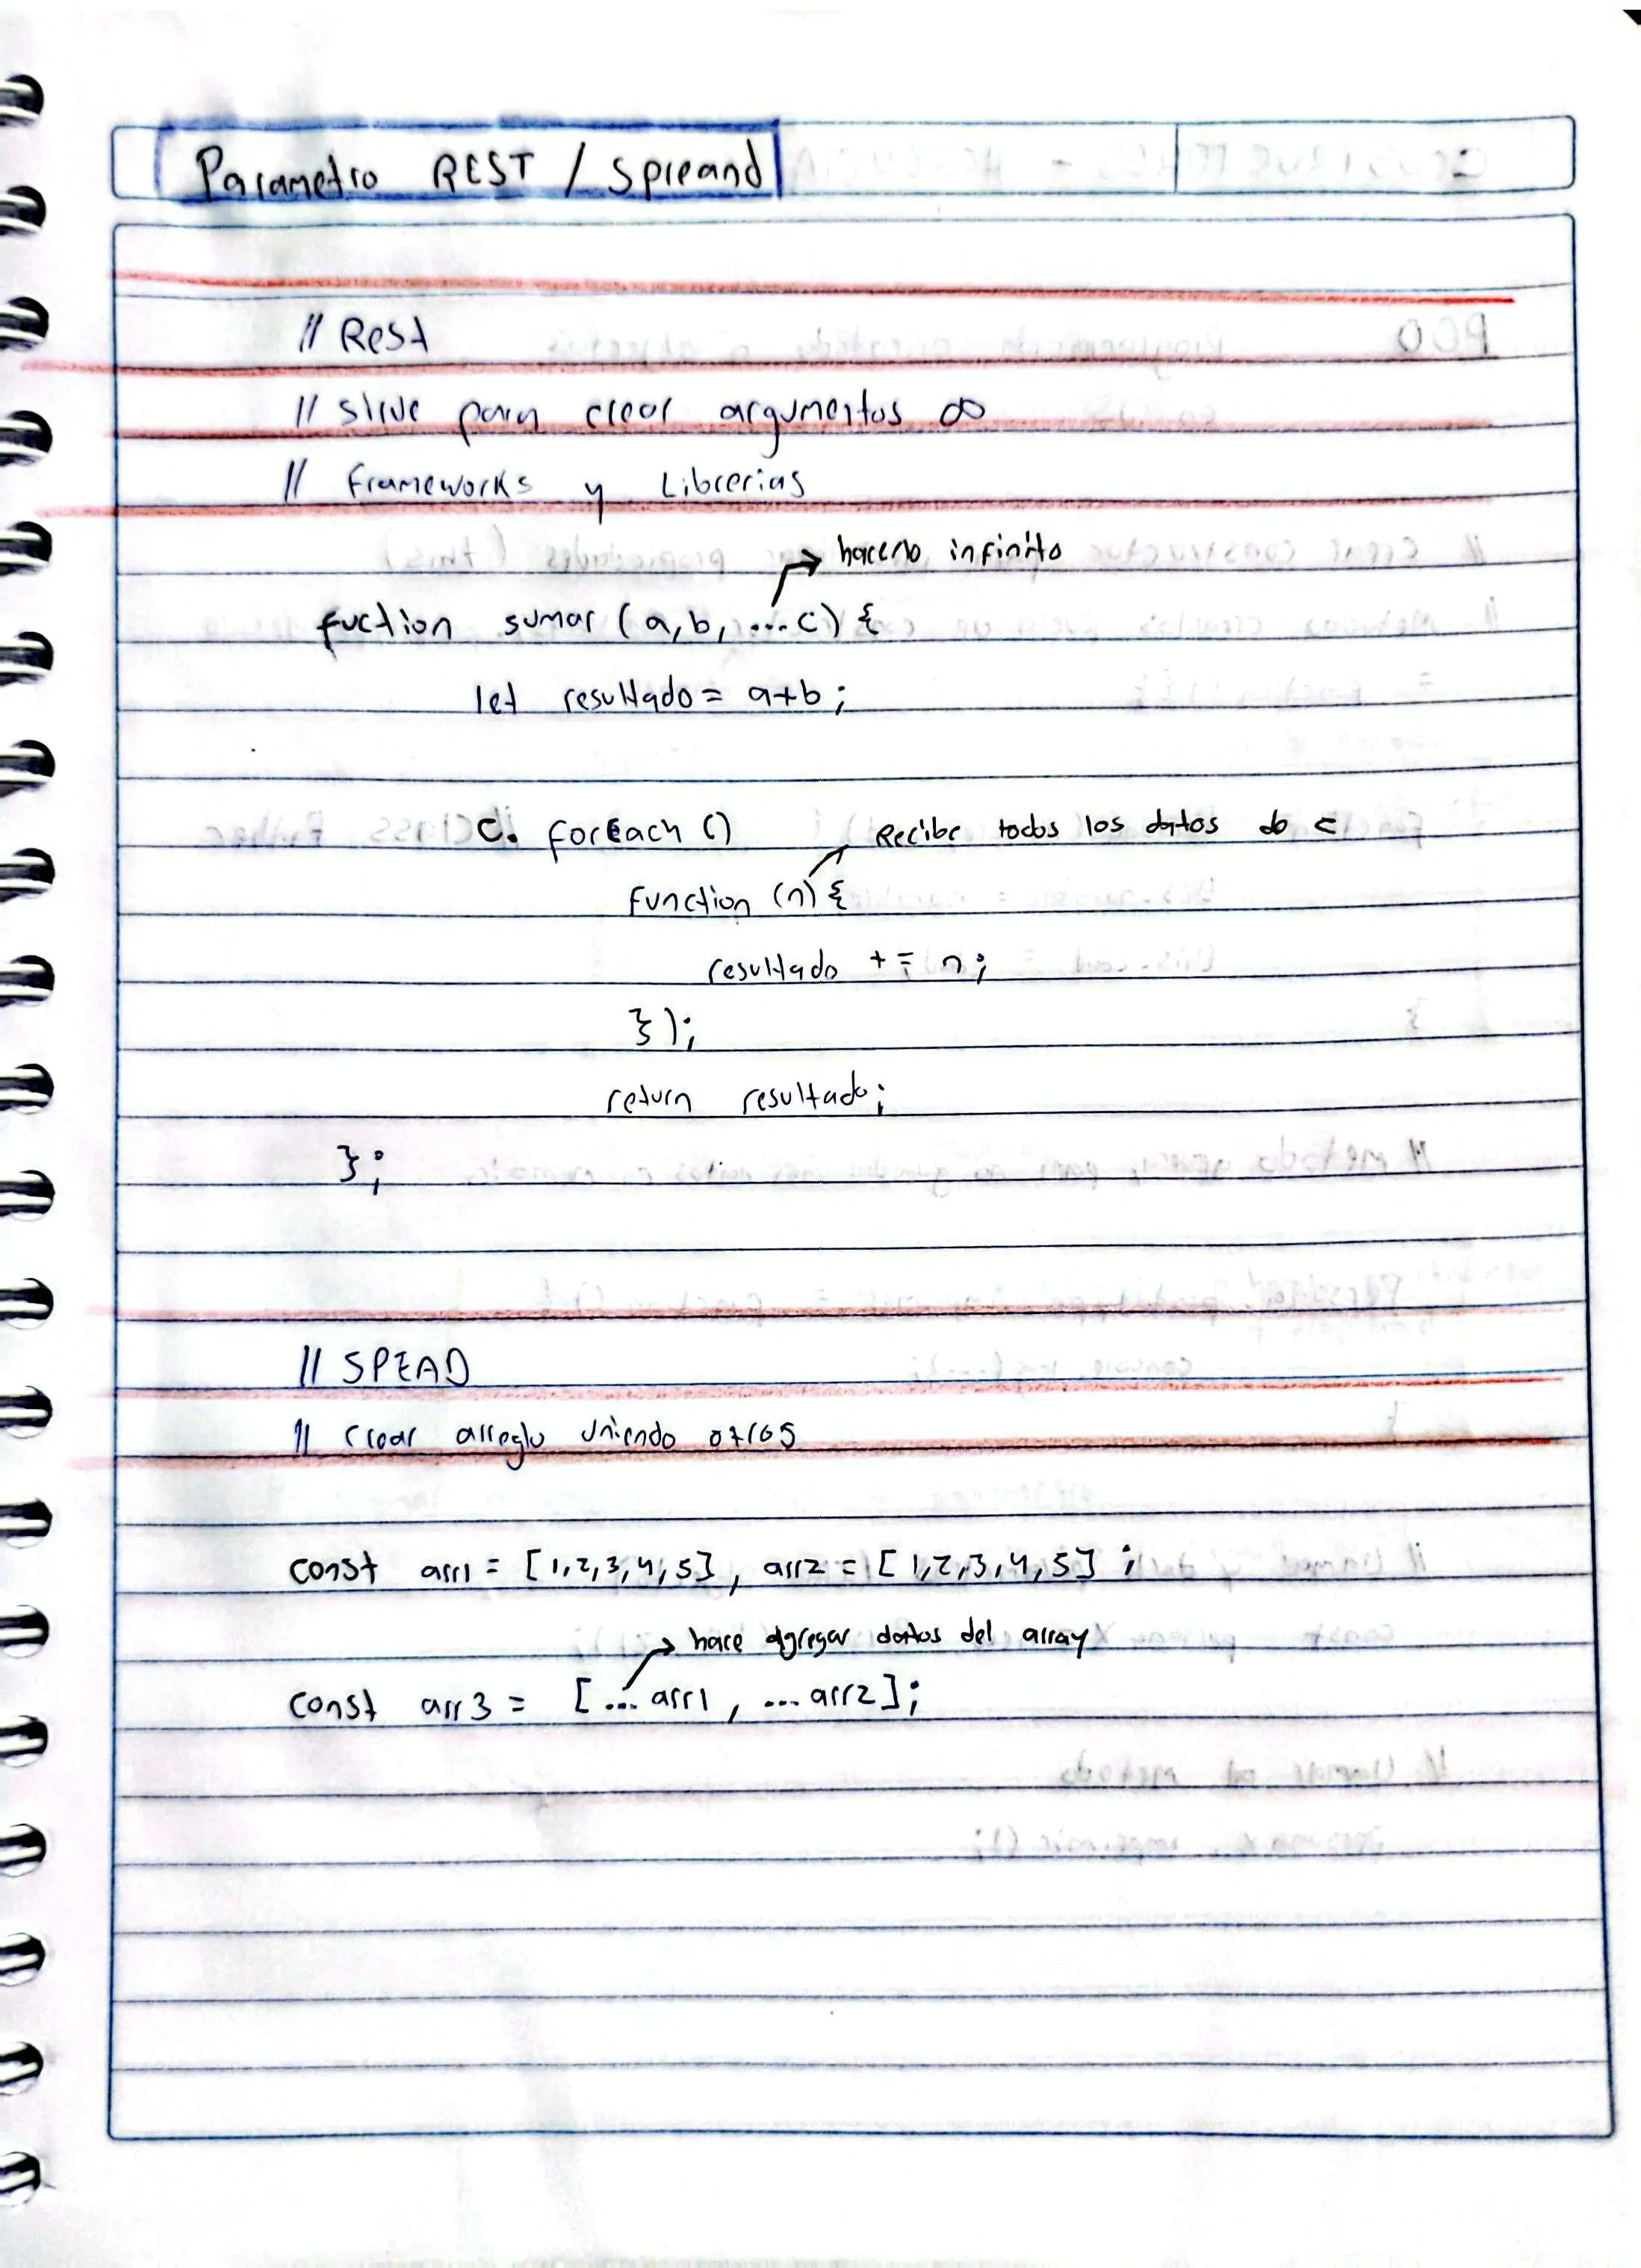 Parametro REST / Spreand
// Rest
// sirve para crear argumentos ∞
// Frameworks y Librerias
hacerlo infinito
fuction sumar (a,b, ...c) {
let resultado = a+b ;
c. forEach ()
Recibe todos los datos do c
function (n) {
resultado += n;
});
return resultado;
};
// SPEAD
// Crear arreglo uniendo otros
const arr1 = [1,2,3,4,5], arr2 = [1,2,3,4,5] ;
hace agregar datos del array
const arr3 = [... arr1 , ... arr2];